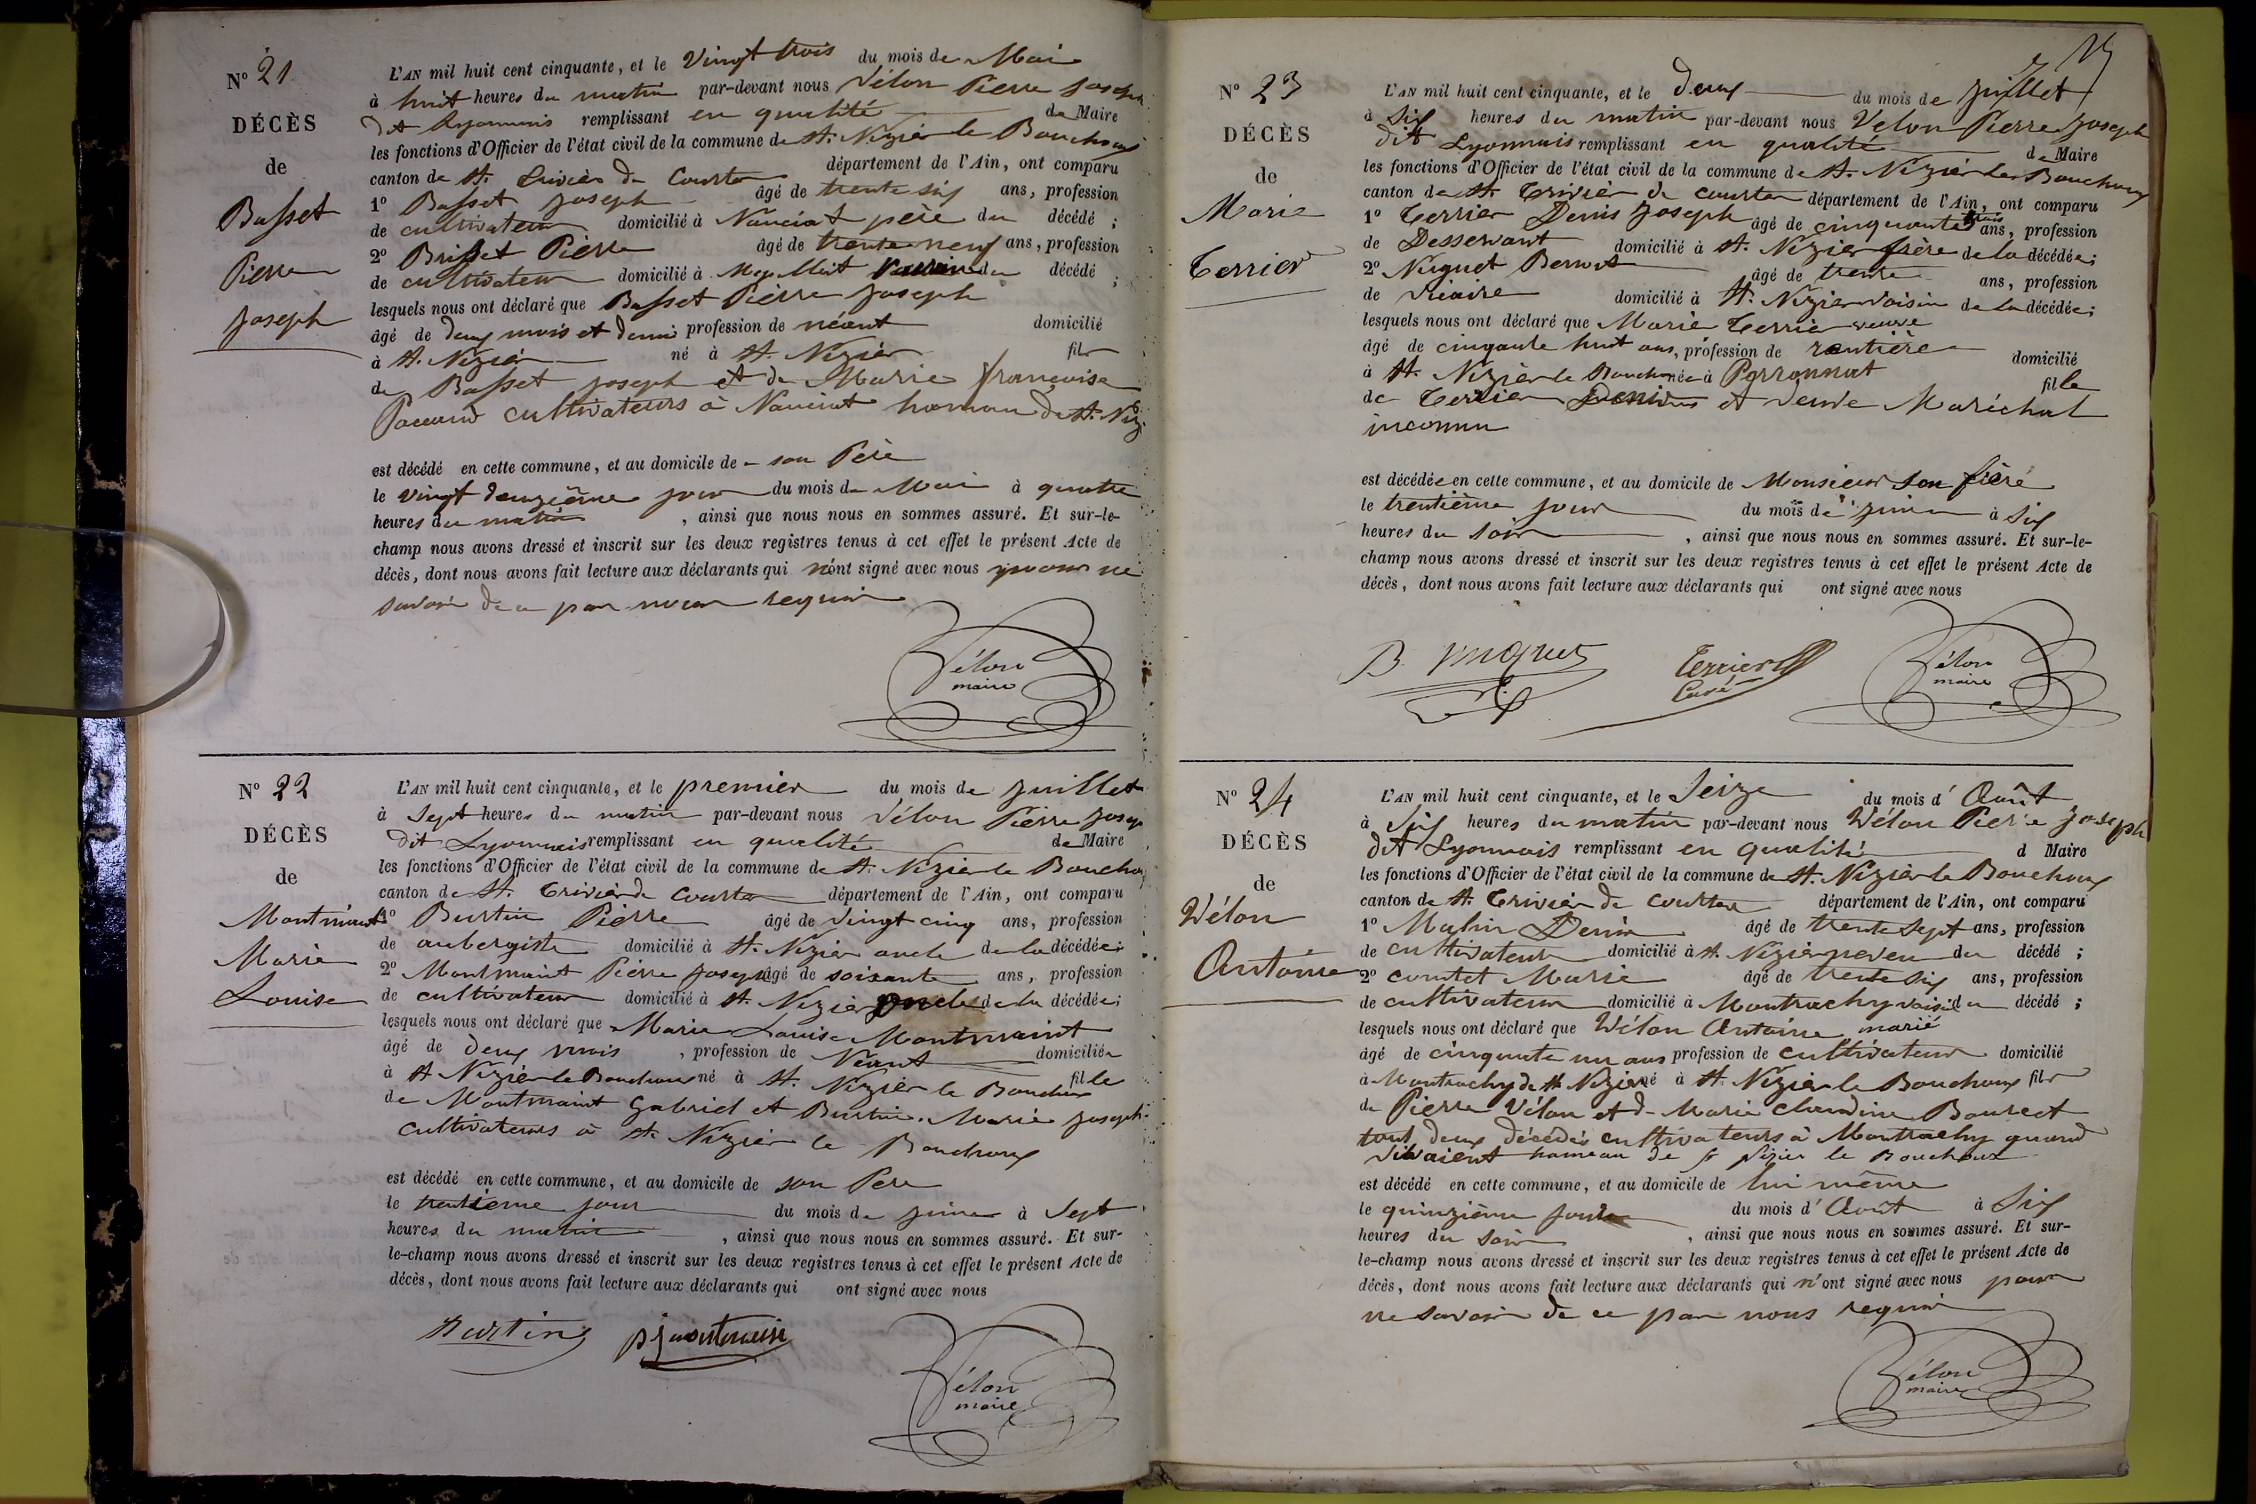 N° 21
DÉCÈS
de
Basset
Pierre
Joseph
L'AN mil huit cent cinquante, et le Vingt trois du mois de Mai
à huit heures du matin par-devant nous Vélon Pierre Joseph
dit Lyonnais remplissant en qualité de Maire
les fonctions d'Officier de l'état civil de la commune de St. Nizier le Bouchoux
canton de St. Trivier de Courtes département de l'Ain, ont comparu
1° Basset Joseph âgé de trente six ans, profession
de cultivateur domicilié à Nanciat père du décédé ;
2° Brisset Pierre âgé de trente neuf ans, profession
de cultivateur domicilié à voisin du décédé ;
lesquels nous ont déclaré que Basset Pierre Joseph
âgé de deux mois et demi profession de néant domicilié
à St. Nizier né à St. Nizier fils
de Basset Joseph et de Marie françoise
cultivateurs à Nanciat hameau de St. Niz
est décédé en cette commune, et au domicile de son Père
le vingt deuxième jour du mois de Mai à quatre
heures du matin , ainsi que nous nous en sommes assuré. Et sur-le-
champ nous avons dressé et inscrit sur les deux registres tenus à cet effet le présent Acte de
décès, dont nous avons fait lecture aux déclarants qui n'ont signé avec nous pour ne
savoir de ce par nous requis
Vélon
maire
N° 22
DÉCÈS
de
Montmaint
Marie
Louise
L'AN mil huit cent cinquante, et le premier du mois de Juillet
à Sept heures du matin par-devant nous Vélon Pierre Josep
dit Lyonnais remplissant en qualité de Maire
les fonctions d'Officier de l'état civil de la commune de St. Nizier le Bouchoux
canton de St. Trivier de Courtes département de l'Ain, ont comparu
1° Burtin Pierre âgé de vingt cinq ans, profession
de aubergiste domicilié à St. Nizier oncle de la décédée ;
2° Montmaint Pierre Joseph âgé de soixante ans, profession
de cultivateur domicilié à St. Nizier oncle de la décédée ;
lesquels nous ont déclaré que Marie Louise Montmaint
âgé de deux mois , profession de Néant domiciliée
à St Nizier le Bouchoux né à St. Nizier le Bouchoux fille
de Montmaint Gabriel et Burtin Marie Joseph
cultivateurs à St. Nizier le Bouchoux
est décédé en cette commune, et au domicile de son Pere
le trentième jour du mois de Juin à Sept
heures du matin , ainsi que nous nous en sommes assuré. Et sur-
le-champ nous avons dressé et inscrit sur les deux registres tenus à cet effet le présent Acte de
décès, dont nous avons fait lecture aux déclarants qui ont signé avec nous
Burtin
Vélon
maire
N° 23
DÉCÈS
de
Marie
Terrier
L'AN mil huit cent cinquante, et le deux du mois de Juillet
à Six heures du matin par-devant nous Vélon Pierre Joseph
dit Lyonnais remplissant en qualité de Maire
les fonctions d'Officier de l'état civil de la commune de St. Nizier le Bouchoux
canton de St. Trivier de Courtes département de l'Ain, ont comparu
1° Terrier Denis Joseph âgé de cinquante trois ans, profession
de Desservant domicilié à St. Nizier frère de la décédée ;
2° Nuguet Benoit âgé de trente ans, profession
de Vicaire domicilié à St. Nizier voisin de la décédée ;
lesquels nous ont déclaré que Marie Terrier veuve
âgé de cinqante huit ans, profession de rentière domicilié
à St. Nizier le Bouch née à Perronnat fille
de Terrier Denis et veuve Maréchal
inconnu
est décédée en cette commune, et au domicile de Monsieur son frère
le trentième jour du mois de juin à six
heures du soir , ainsi que nous nous en sommes assuré. Et sur-le-
champ nous avons dressé et inscrit sur les deux registres tenus à cet effet le présent Acte de
décès, dont nous avons fait lecture aux déclarants qui ont signé avec nous
B. Nuguet
Terrier
Curé
Vélon
maire
N° 24
DÉCÈS
de
Vélon
Antoine
L'AN mil huit cent cinquante, et le Seize du mois d' Août
à Six heures du matin par-devant nous Vélon Pierre Joseph
dit Lyonnais remplissant en qualité d Maire
les fonctions d'Officier de l'état civil de la commune de St. Nizier le Bouchoux
canton de St. Trivier de Courtes département de l'Ain, ont comparu
1° Mulin Denis âgé de trente sept ans, profession
de cultivateur domicilié à St. Nizier neveu du décédé ;
2° comtet Marie âgé de trente six ans, profession
de cultivateur domicilié à Montrachy voisin du décédé ;
lesquels nous ont déclaré que Vélon Antoine marié
âgé de cinquante un ans profession de cultivateur domicilié
à Montrachy de St. Nizier né à St. Nizier le Bouchoux fils
de Pierre Vélon et de Marie claudine Bourcet
tout deux décédés cultivateurs à Montrachy quand
vivaient hameau de St Nizier le Bouchoux
est décédé en cette commune, et au domicile de lui même
le quinzième jour du mois d' Août à Six
heures du soir , ainsi que nous nous en sommes assuré. Et sur-
le-champ nous avons dressé et inscrit sur les deux registres tenus à cet effet le présent Acte de
décès, dont nous avons fait lecture aux déclarants qui n'ont signé avec nous pour
ne savoir de ce par nous requis
Vélon
maire